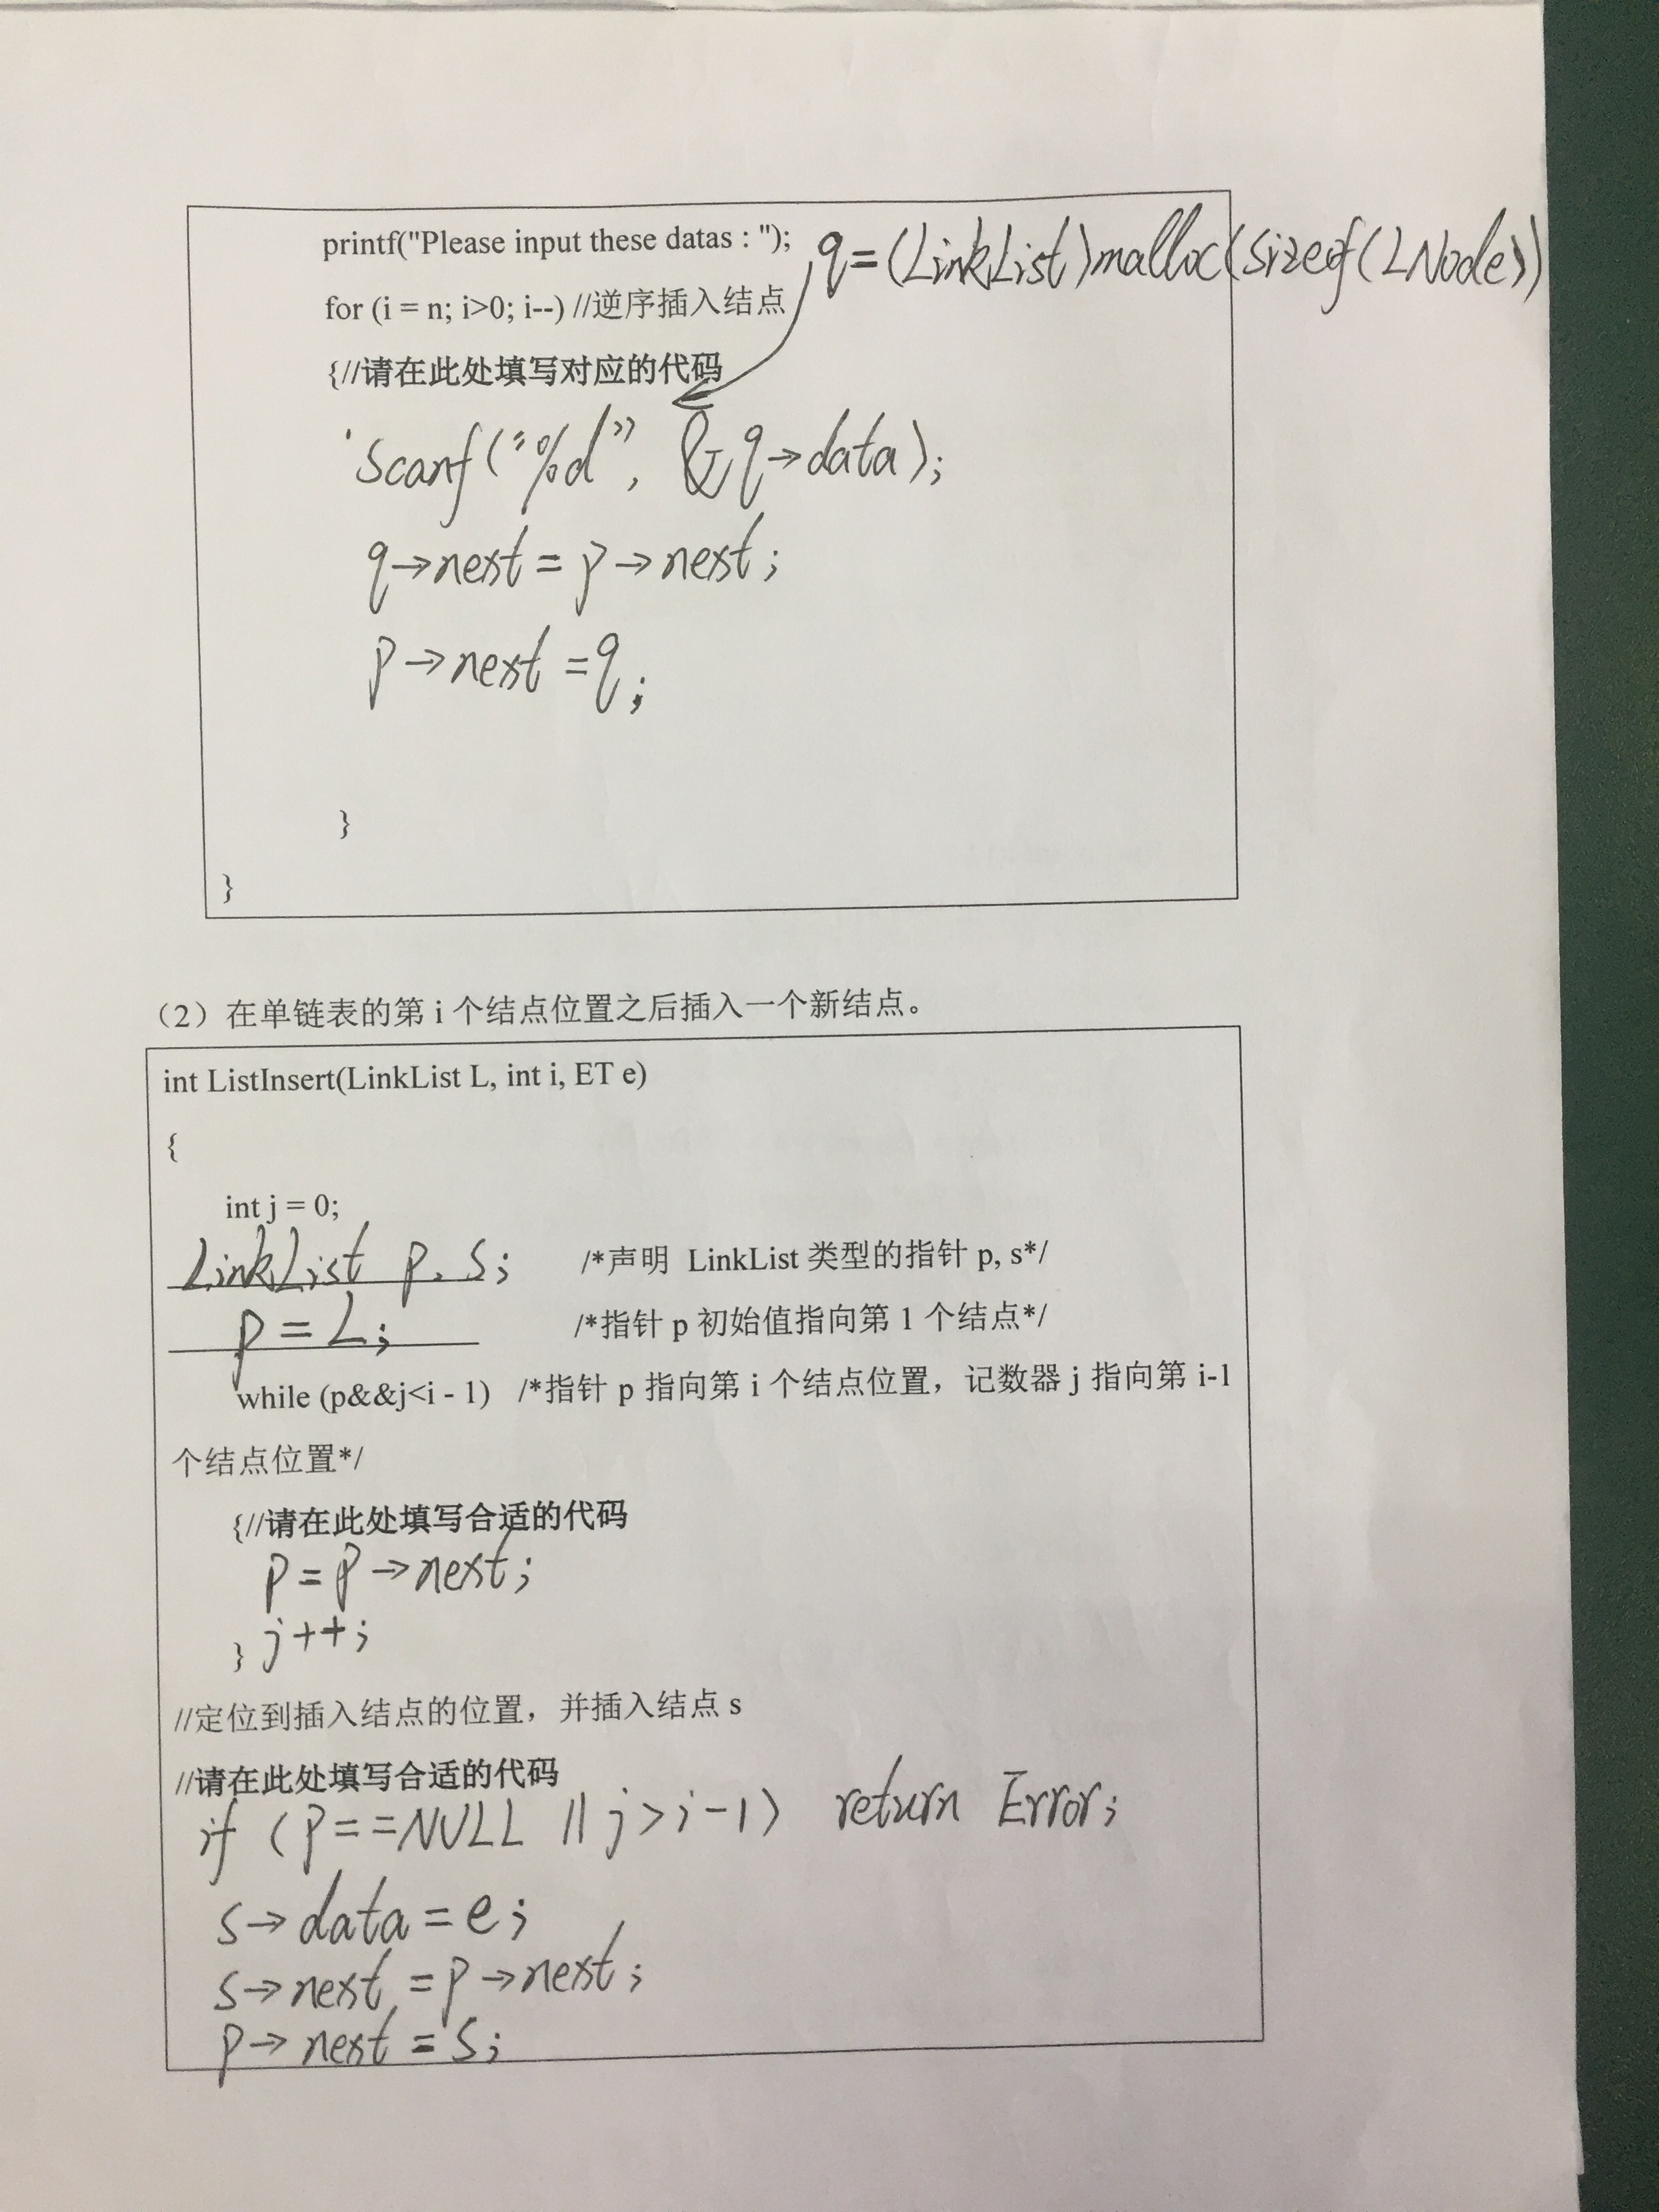 printf("Please input these datas : "); q=(LinkList)malloc(sizeof(LNode))
for (i = n; i>0; i--) //逆序插入结点
{//请在此处填写对应的代码
scanf("%d", &q→data);
q→next = p→next;
p→next = q;
}
}
（2）在单链表的第 i 个结点位置之后插入一个新结点。
int ListInsert(LinkList L, int i, ET e)
{
int j = 0;
LinkList p, s; /*声明 LinkList 类型的指针 p, s*/
p = L; /*指针 p 初始值指向第 1 个结点*/
while (p&&j<i - 1) /*指针 p 指向第 i 个结点位置，记数器 j 指向第 i-1
个结点位置*/
{//请在此处填写合适的代码
p = p→next;
} j++;
//定位到插入结点的位置，并插入结点 s
//请在此处填写合适的代码
if (p==NULL || j>i-1) return Error;
s→data = e;
s→next = p→next;
p→next = s;